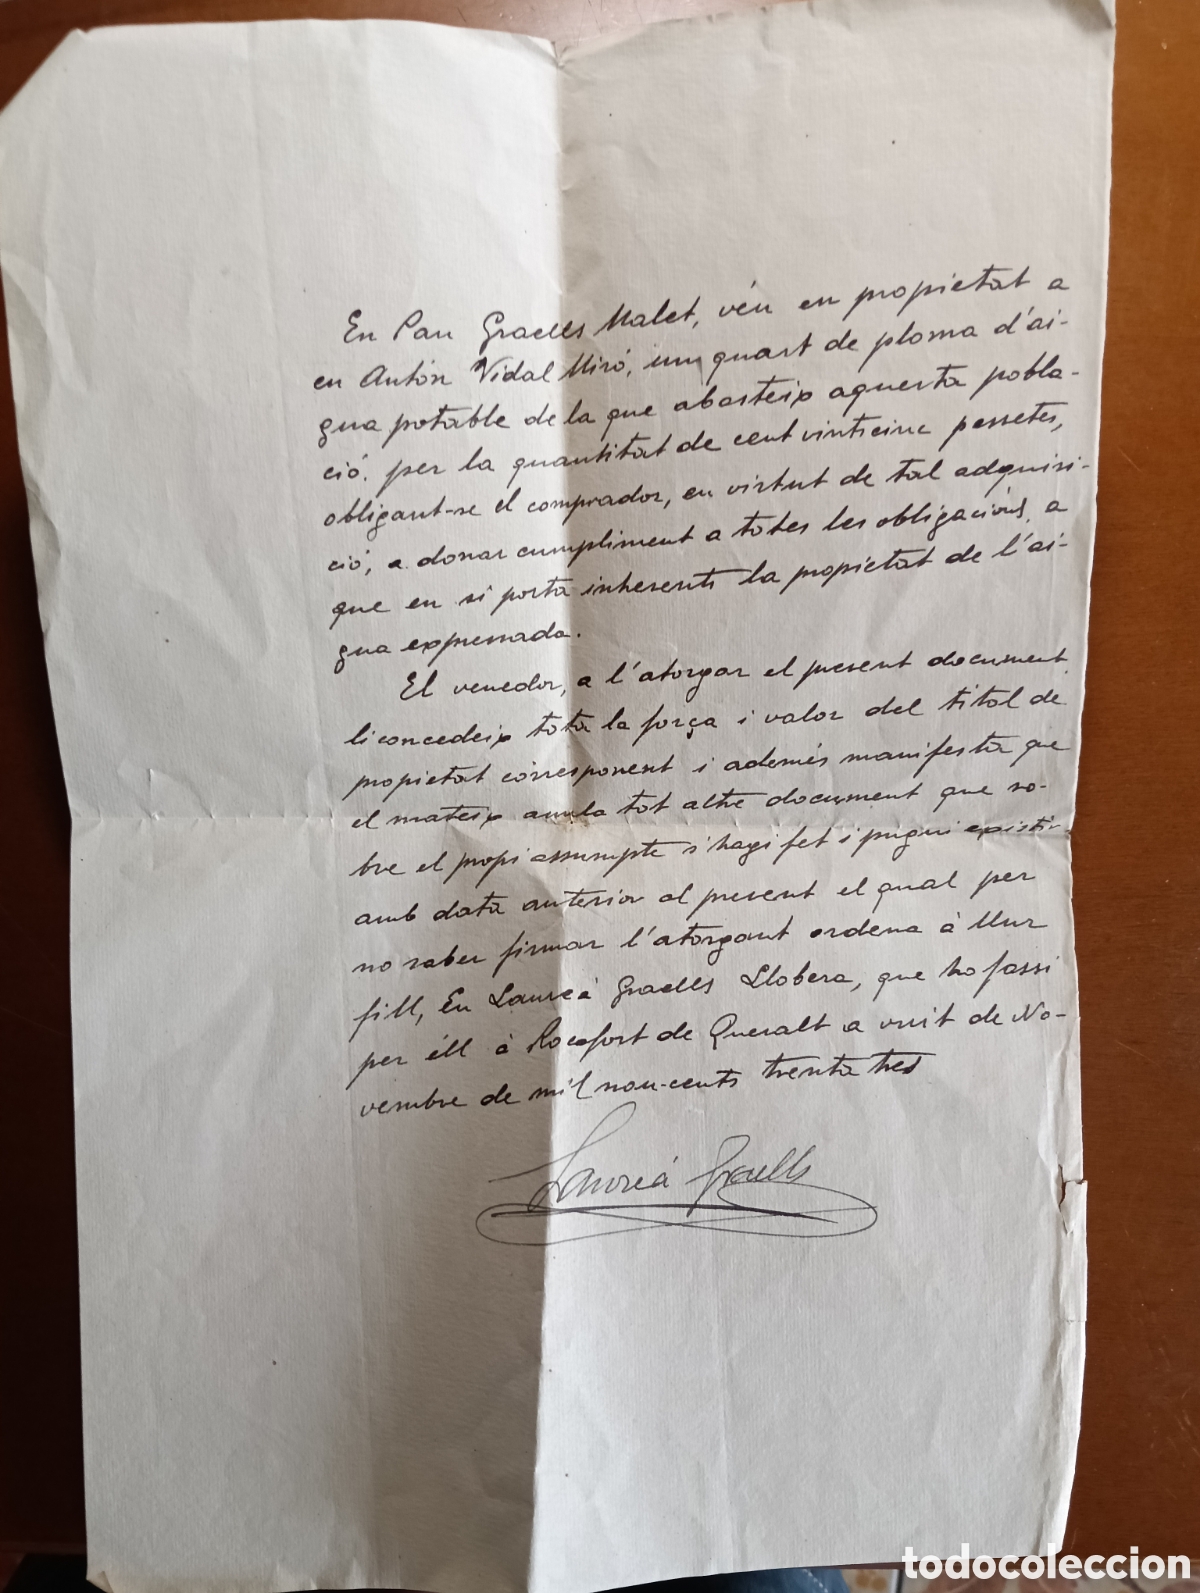 En Pau Graells Malet, vén en propietat a
en Antón Vidal Miró, un quart de ploma d'ai-
gua potable de la que abasteix aquesta pobla-
ció. per la quantitat de cent vinticinc pessetes,
obligant-se el comprador, en virtut de tal adquisi-
ció, a donar cumpliment a totes les obligacións, a
que en si porta inherents la propietat de l'ai-
gua expressada.
El venedor, a l'atorgar el present document
li concedeix tota la força i valor del titol de
propietat corresponent i además manifesta que
el mateix anula tot altre document que so-
bre el propi assumpte s'hagi fet i pugui existir
amb data anterior al present el qual per
no saber firmar l'atorgant ordena à llur
fill, En Laureà Graells Llobera, que ho fassi
per éll à Rocafort de Queralt a vuit de No-
vembre de mil nou-cents trenta tres
Laureà Graells
todocoleccion